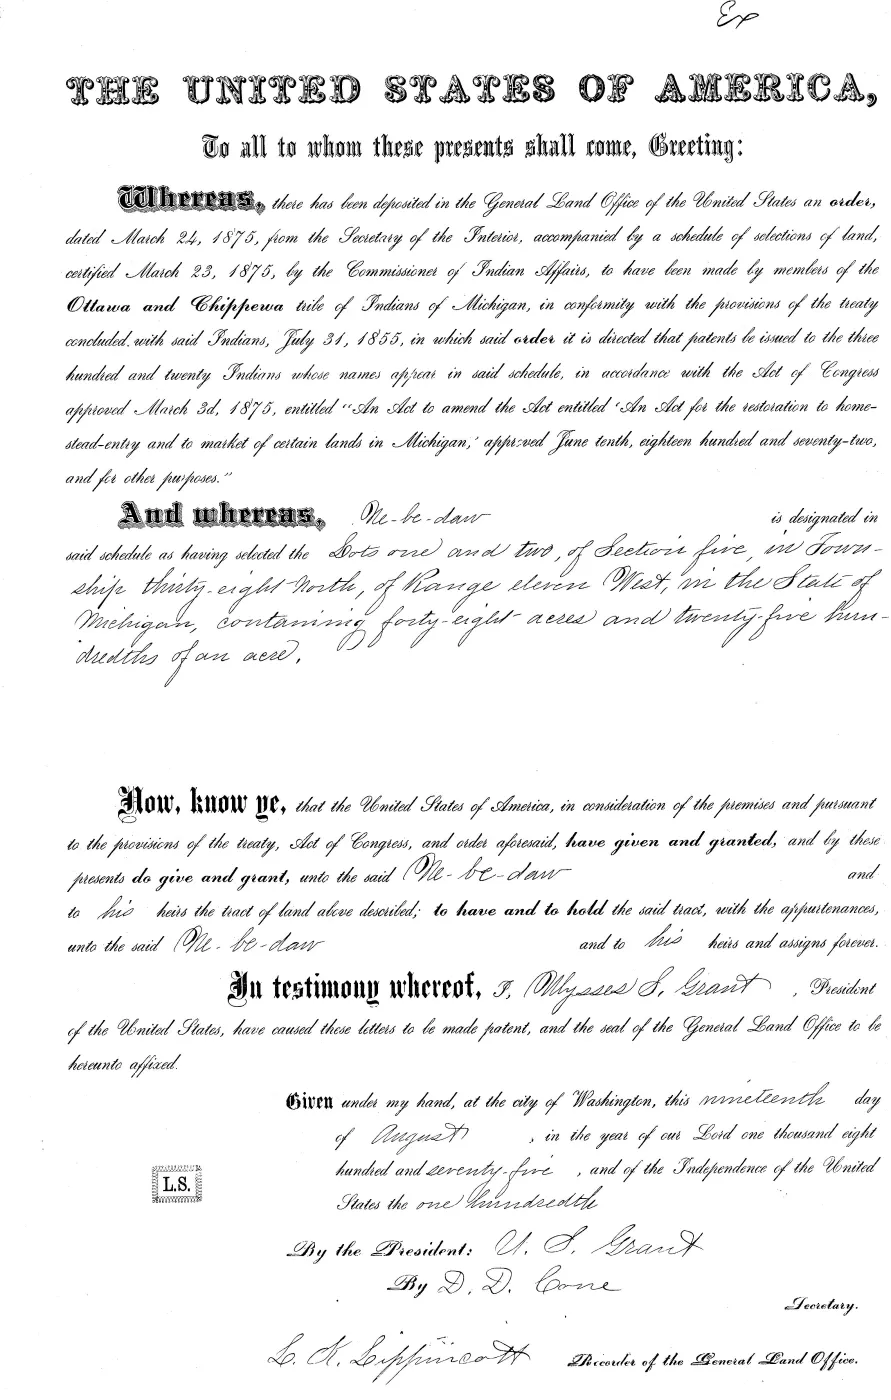 Ex
THE UNITED STATES OF AMERICA,
To all to whom these presents shall come, Greeting:
Whereas, there has been deposited in the General Land Office of the United States an order,
dated March 24, 1875, from the Secretary of the Interior, accompanied by a schedule of selections of land,
certified March 23, 1875, by the Commissioner of Indian Affairs, to have been made by members of the
Ottawa and Chippewa tribe of Indians of Michigan, in conformity with the provisions of the treaty
concluded with said Indians, July 31, 1855, in which said order it is directed that patents be issued to the three
hundred and twenty Indians whose names appear in said schedule, in accordance with the Act of Congress
approved March 3d, 1875, entitled "An Act to amend the Act entitled 'An Act for the restoration to home-
stead-entry and to market of certain lands in Michigan,' approved June tenth, eighteen hundred and seventy-two,
and for other purposes."
And whereas, Ne-be-daw is designated in
said schedule as having selected the Lots one and two, of Section five, in Town-
ship thirty-eight North, of Range eleven West, in the State of
Michigan, containing forty-eight acres and twenty-five hun-
dredths of an acre.
Now, know ye, that the United States of America, in consideration of the premises and pursuant
to the provisions of the treaty, Act of Congress, and order aforesaid, have given and granted, and by these
presents do give and grant, unto the said Ne-be-daw and
to his heirs the tract of land above described; to have and to hold the said tract, with the appurtenances,
unto the said Ne-be-daw and to his heirs and assigns forever.
In testimony whereof, I, Ulysses S. Grant, President
of the United States, have caused these letters to be made patent, and the seal of the General Land Office to be
hereunto affixed.
Given under my hand, at the city of Washington, this nineteenth day
of August, in the year of our Lord one thousand eight
hundred and seventy-five, and of the Independence of the United
States the one hundredth
L.S.
By the President: U. S. Grant
By D. D. Cone
Secretary.
L. K. Lippincott Recorder of the General Land Office.